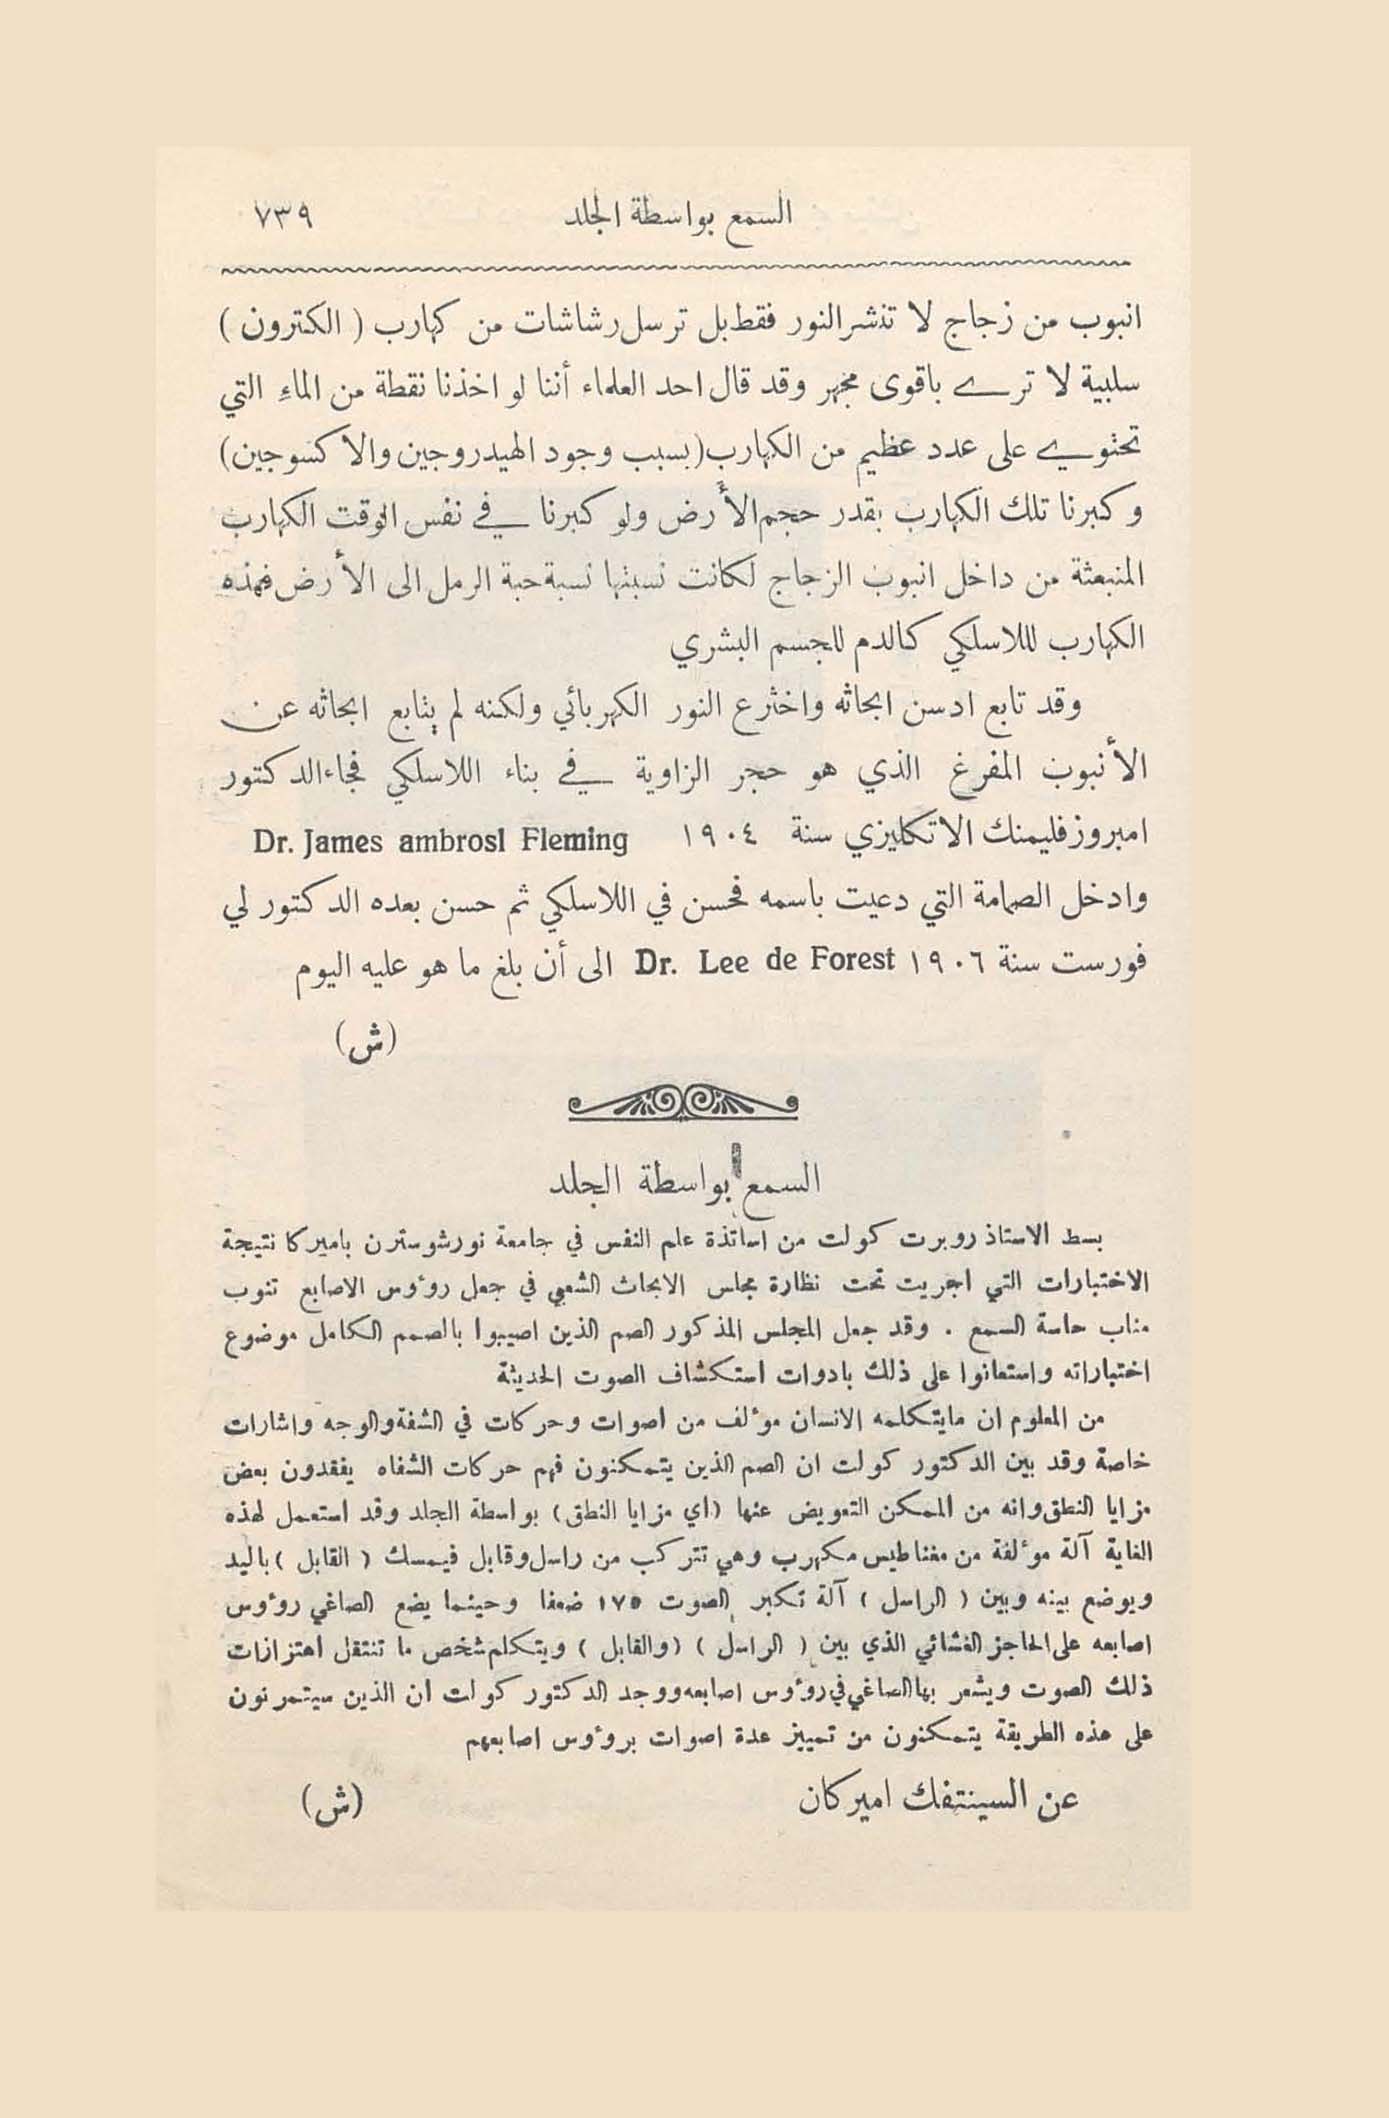 السمع بواسطة الجلد ٧٣٩
انبوب من زجاج لا تنشر النور فقط بل ترسل رشاشات من كهارب ( الكترون )
سلبية لا ترے باقوى مجهر وقد قال احد العلماء أننا لو اخذنا نقطة من الماء التي
تحتوے على عدد عظيم من الكهارب (بسبب وجود الهيدروجين والاكسوجين)
وكبرنا تلك الكهارب بقدر حجم الأرض ولو كبرنا في نفس الوقت الكهارب
المنبعثة من داخل انبوب الزجاج لكانت نسبتها نسبة حبة الرمل الى الأرض فهذه
الكهارب للاسلكي كالدم للجسم البشري
وقد تابع ادسن ابحاثه واخترع النور الكهربائي ولكنه لم يتابع ابحاثه عن
الأنبوب المفرغ الذي هو حجر الزاوية في بناء اللاسلكي فجاء الدكتور
امبروز فليمنك الاتكليزي سنة ١٩٠٤ Dr. James ambrosl Fleming
وادخل الصمامة التي دعيت باسمه فحسن في اللاسلكي ثم حسن بعده الدكتور لي
فورست سنة ١٩٠٦ Dr. Lee de Forest الى أن بلغ ما هو عليه اليوم
(ش)
السمع بواسطة الجلد
بسط الاستاذ روبرت كولت من اساتذة علم النفس في جامعة نورشوسترن باميركا نتيجة
الاختبارات التي اجريت تحت نظارة مجلس الابحاث الشعبي في جعل روؤس الاصابع تنوب
مناب حاسة السمع . وقد جعل المجلس المذكور الصم الذين اصيبوا بالصمم الكامل موضوع
اختباراته واستعانوا على ذلك بادوات استكشاف الصوت الحديثة
من المعلوم ان مايتكلمه الانسان موءلف من اصوات وحركات في الشفة والوجه واشارات
خاصة وقد بين الدكتور كولت ان الصم الذين يتمكنون فهم حركات الشفاه يفقدون بعض
مزايا النطق وانه من الممكن التعويض عنها (اي مزايا النطق) بواسطة الجلد وقد استعمل لهذه
الغاية آلة موءلفة من مغناطيس مكهرب وهي تتركب من راسل وقابل فيمسك ( القابل ) باليد
ويوضع بينه وبين ( الراسل ) آلة تكبر الصوت ١٧٥ ضعفا وحينما يضع الصاغي روؤس
اصابعه على الحاجز الغشائي الذي بين ( الراسل ) (والقابل ) ويتكلم شخص ما تنتقل اهتزازات
ذلك الصوت ويشعر بها الصاغي في روؤس اصابعه ووجد الدكتور كولت ان الذين سيتمرنون
على هذه الطريقة يتمكنون من تمييز عدة اصوات بروؤس اصابعهم
عن السينتفك اميركان (ش)